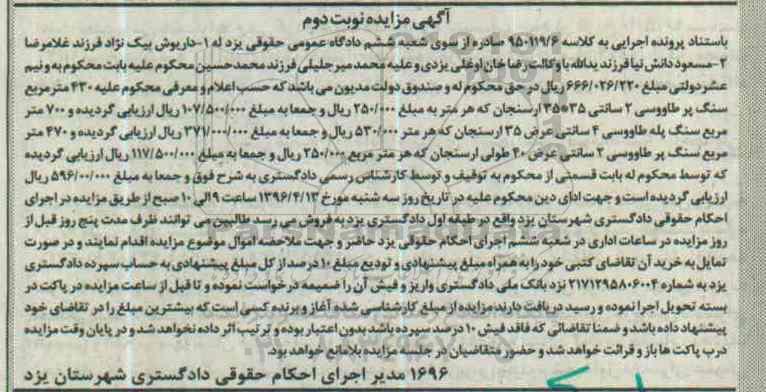 آگهی مزایده نوبت دوم
باستناد پرونده اجرایی به کلاسه ۹۵۰۱۱۹/۶ صادره از سوی شعبه ششم دادگاه عمومی حقوقی یزد له ۱-داریوش بیک نژاد فرزند غلامرضا
۲-مسعود دانش نیا فرزند یدالله با وکالت رضا خان اوغلی یزدی و علیه محمد میرجلیلی فرزند محمدحسین محکوم علیه بابت محکوم به و نیم
عشر دولتی مبلغ ۶۶۶/۰۲۶/۲۲۰ ریال در حق محکوم له و صندوق دولت مدیون می باشد که حسب اعلام و معرفی محکوم علیه ۴۳۰ مترمربع
سنگ پر طاووسی ۲ سانتی ۳۵*۳۵ ارسنجان که هر متر به مبلغ ۲۵۰/۰۰۰ ریال و جمعا به مبلغ ۱۰۷/۵۰۰/۰۰۰ ریال ارزیابی گردیده و ۷۰۰ متر
مربع سنگ پله طاووسی ۴ سانتی عرض ۳۵ ارسنجان که هر متر ۵۳۰/۰۰۰ ریال و جمعا به مبلغ ۳۷۱/۰۰۰/۰۰۰ ریال ارزیابی گردیده و ۴۷۰ متر
مربع سنگ پر طاووسی ۲ سانتی عرض ۴۰ طولی ارسنجان که هر متر مربع ۲۵۰/۰۰۰ ریال و جمعا به مبلغ ۱۱۷/۵۰۰/۰۰۰ ریال ارزیابی گردیده
که توسط محکوم له بابت قسمتی از محکوم به توقیف و توسط کارشناس رسمی دادگستری به شرح فوق و جمعا به مبلغ ۵۹۶/۰۰/۰۰۰ ریال
ارزیابی گردیده است و جهت ادای دین محکوم علیه در تاریخ روز سه شنبه مورخ ۱۳۹۶/۴/۱۳ ساعت ۹ الی ۱۰ صبح از طریق مزایده در اجرای
احکام حقوقی دادگستری شهرستان یزد واقع در طبقه اول دادگستری یزد به فروش می رسد طالبین می توانند ظرف مدت پنج روز قبل از
روز مزایده در ساعات اداری در شعبه ششم اجرای احکام حقوقی یزد حاضر و جهت ملاحضه اموال موضوع مزایده اقدام نمایند و در صورت
تمایل به خرید آن تقاضای کتبی خود را به همراه مبلغ پیشنهادی و تودیع مبلغ ۱۰ درصد از کل مبلغ پیشنهادی به حساب سپرده دادگستری
یزد به شماره ۲۱۷۱۲۹۵۸۰۶۰۰۴ نزد بانک ملی دادگستری واریز و فیش آن را ضمیمه درخواست نموده و تا قبل از ساعت مزایده در پاکت در
بسته تحویل اجرا نموده و رسید دریافت دارند مزایده از مبلغ کارشناسی شده آغاز و برنده کسی است که بیشترین مبلغ را در تقاضای خود
پیشنهاد داده باشد و ضمنا تقاضائی که فاقد فیش ۱۰ درصد سپرده باشد بدون اعتبار بوده و ترتیب اثر داده نخواهد شد و در پایان وقت مزایده
درب پاکت ها باز و قرائت خواهد شد و حضور متقاضیان در جلسه مزایده بلامانع خواهد بود.
۱۶۹۶ مدیر اجرای احکام حقوقی دادگستری شهرستان یزد